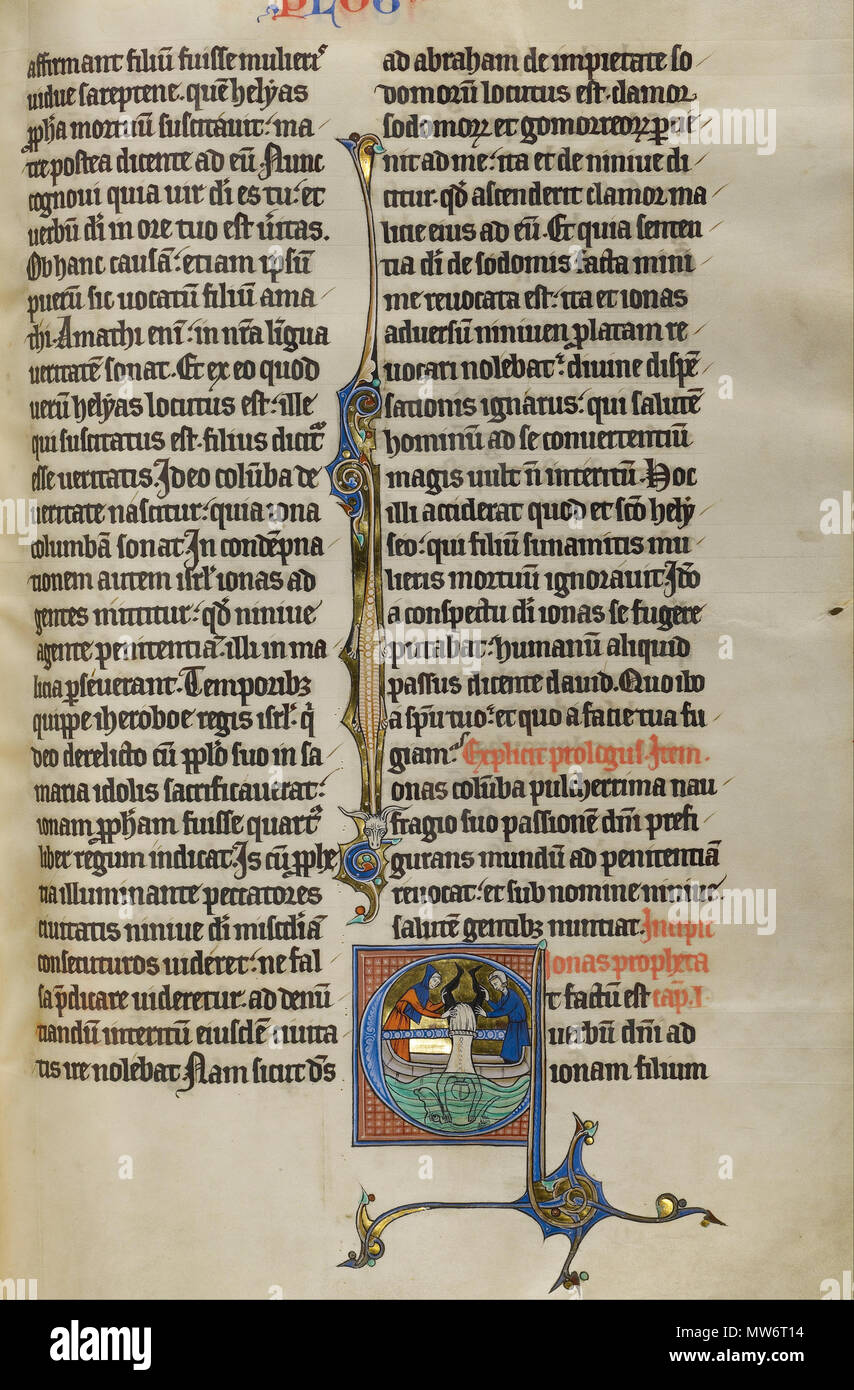 PLOG
affirmant filiū fuisse mulierꝭ
uidue sareptene. quē helyas
ꝓpha mortuū suscitauit: ma
tre postea dicente ad eū. Nunc
cognoui quia uir dī es tu: et
uerbū dī in ore tuo est ūitas.
Ob hanc causā: etiam ipsū
puerū sic uocatū filiū ama
thi. Amathi enī: in nrā līgua
ueritatē sonat. Et ex eo quod
uerū helyas locutus est: ille
qui suscitatus est. filius dicit᷑
esse ueritatis. Ideo colūba de
ueritate nascitur: quia iona
columbā sonat. In condēpna
tionem autem isrl̄. ionas ad
gentes mittitur: qd̄ niniue
agente penitentiā. illi in ma
licia ꝑseuerant. Temporibꝫ
quippe iheroboe regis isrl̄. q̄
deo derelicto cū pplō suo in sa
maria idolis sacrificauerat:
ionam ꝓpham fuisse quart᷑
liber regum indicat. Is cū ꝓphe
tia illuminante peccatores
ciuitatis niniue dī misc̄diā
consecuturos uideret: ne fal
sa p̄dicare uideretur. ad denū
tiandū interitū eiusdē ciuita
tis ire nolebat. Nam sicut dn̄s
ad abraham de impietate so
domorū locutus est. clamor
sodomoꝝ et gomorreoꝝ ꝑue
nit ad me: ita et de niniue di
citur. qd̄ ascenderit clamor ma
licie eius ad eū. Et quia senten
tia dī de sodomis facta mini
me reuocata est: ita et ionas
aduersū niniuen ꝓlatam re
uocari nolebat: diuine dispē
sationis ignarus: qui salutē
hominū ad se conuertentiū
magis uult n̄ interitū. Hoc
illi acciderat quod et sc̄o hely
seo: qui filiū sunamitis mu
lieris mortuū ignorauit. Idō
a conspectu dī ionas se fugere
putabat: humanū aliquid
passus dicente dauid. Quo ibo
a spū tuo: et quo a facie tua fu
giam. Explicit prologus. Item.
ionas colūba pulcherrima nau
fragio suo passionē dnī prefi
gurans mundū ad penitentiā
reuocat: et sub nomine niniue
salutē gentibꝫ nuntiat. Incipit
ionas propheta
Et factū est cap̄. I.
uerbū dnī ad
ionam filium
alamy
alamy
Image ID: MW6T14
www.alamy.com